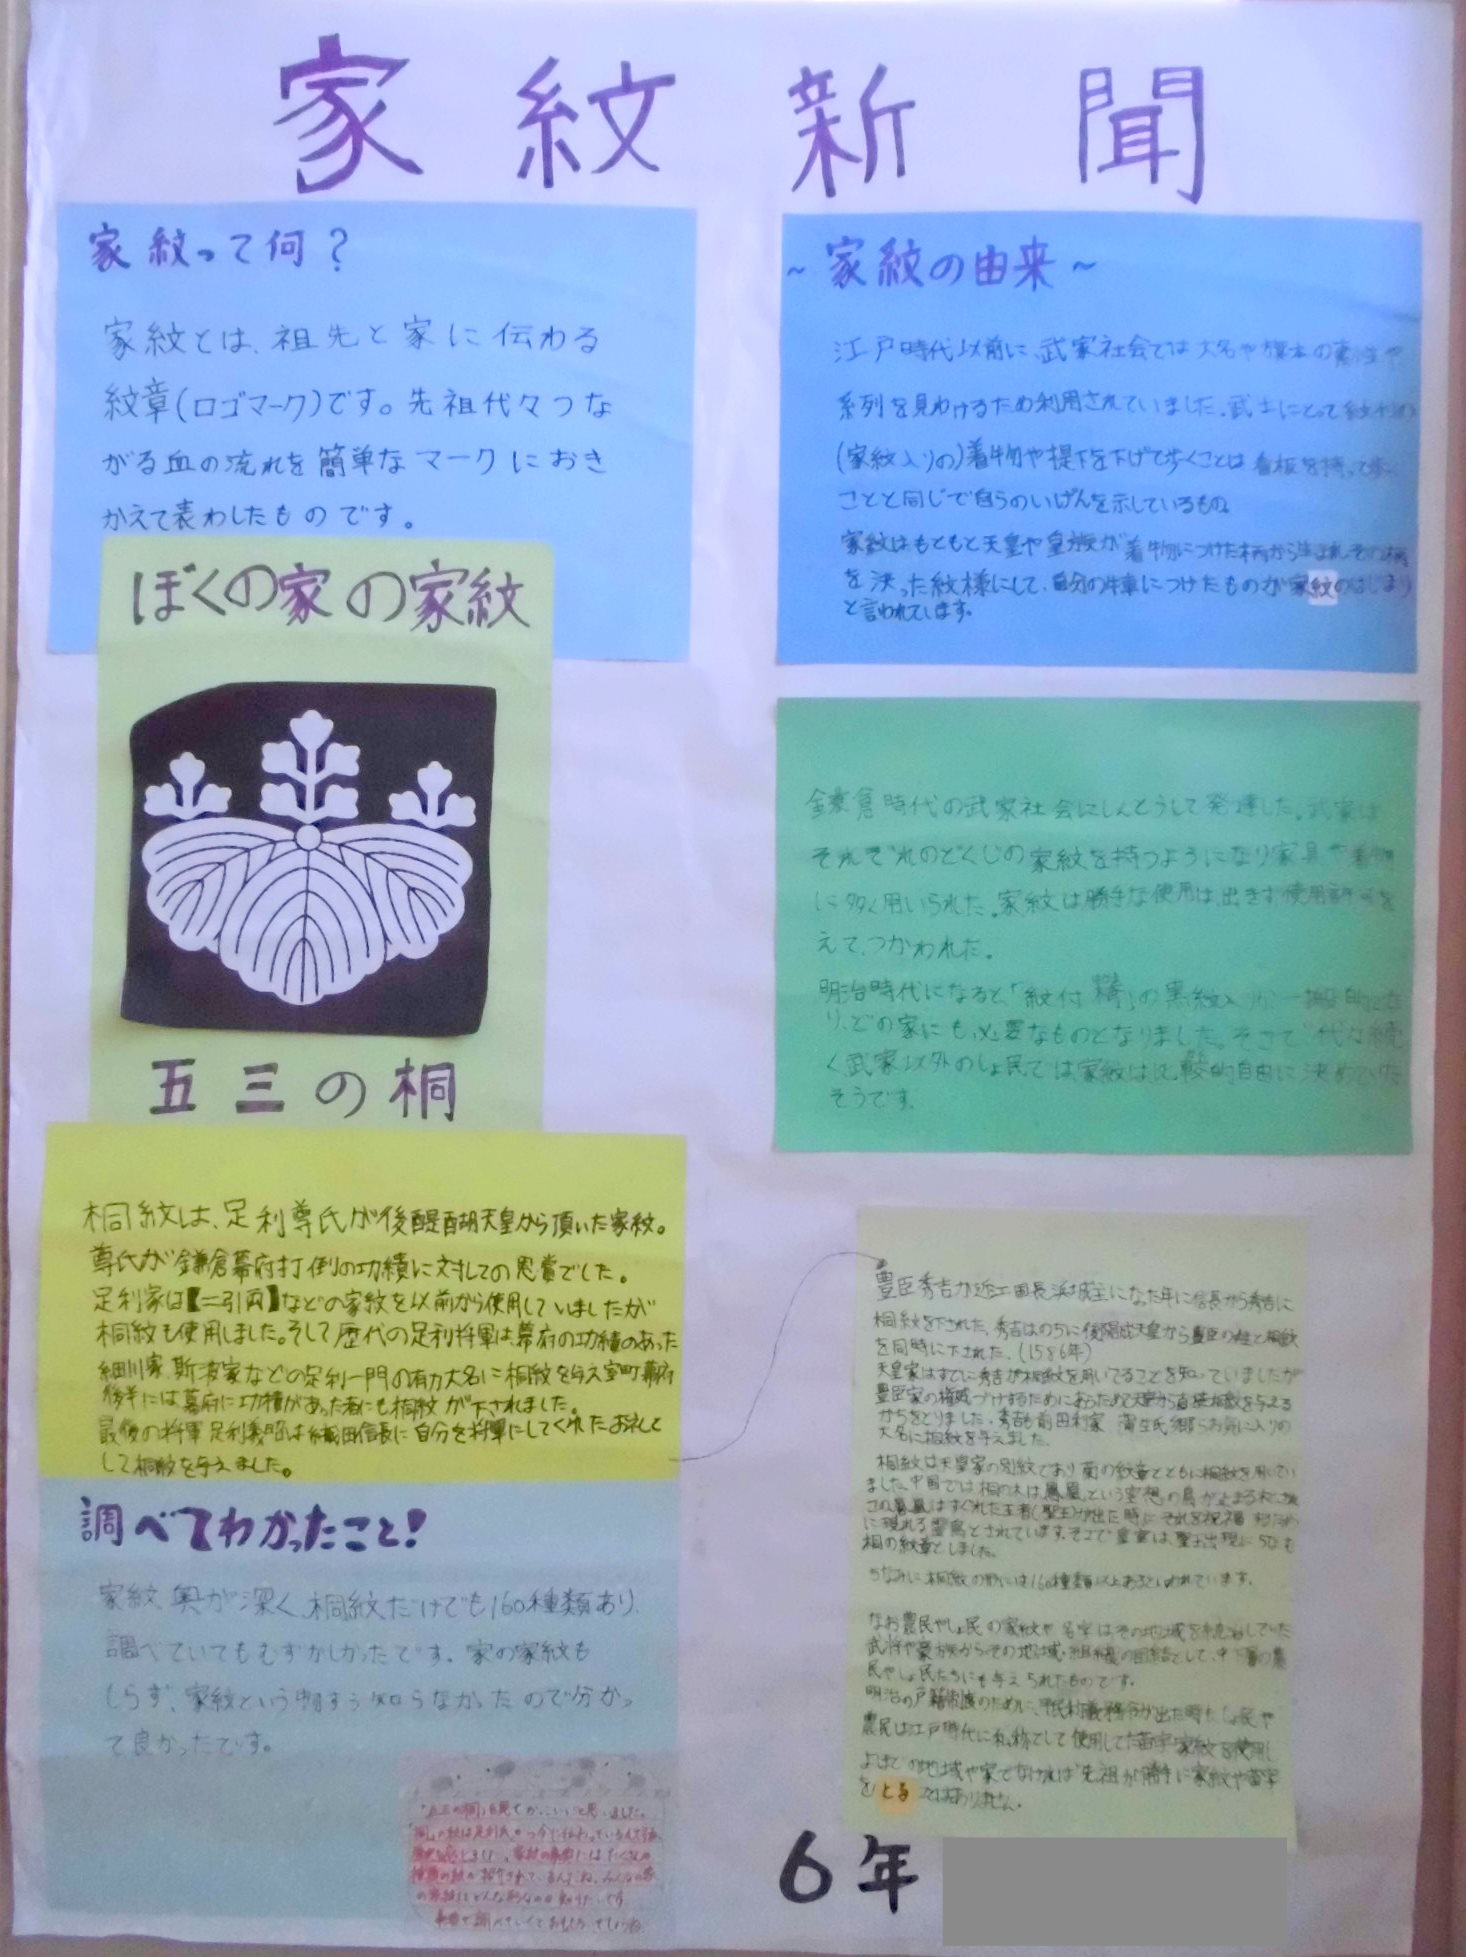 家紋新聞
家紋って何?
家紋とは、祖先と家に伝わる
紋章(ロゴマーク)です。先祖代々つな
がる血の流れを簡単なマークにおき
かえて表わしたものです。
ぼくの家の家紋
五三の桐
桐紋は、足利尊氏が後醍醐天皇から頂いた家紋。
尊氏が鎌倉幕府打倒の功績に対しての恩賞でした。
足利家は【二引両】などの家紋を以前から使用していましたが
桐紋も使用しました。そして歴代の足利将軍は、幕府の功績のあった
細川家、斯波家などの足利一門の有力大名に桐紋を与え室町幕府
後半には幕府に功積があった者にも桐紋が下されました。
最後の将軍足利義昭は織田信長に自分を将軍にしてくれたお礼と
して桐紋を与えました。
調べてわかったこと!
家紋、奥が深く、桐紋だけでも160種類あり、
調べていてもむずかしかったです。家の家紋も
しらず、家紋という物すら知らなかったので分かっ
て良かったです。
~家紋の由来~
江戸時代以前に、武家社会では大名や旗本の
系列を見わけるため利用されていました。武士にとって
(家紋入りの)着物や提下を下げて歩くことは看板を持って歩く
ことと同じで自らのいげんを示しているもの
家紋はもともと天皇や皇族が着物につけた柄から生まれその柄
を決った紋様にして、自分の牛車につけたものが家紋のはじまり
と言われています。
鎌倉時代の武家社会にしんとうして発達した。武家は
それぞれのどくじの家紋を持つようになり家具や着物
に多く用いられた。家紋は勝手な使用は、出きず使用許可を
えて、つかわれた。
明治時代になると、「紋付 」の黒紋
り、どの家にも必要なものとなりました。そこで代々続
く武家以外のしょ民では家紋は比較的自由に決めていた
そうです。
豊臣秀吉が近江国長浜城主になった年に信長から秀吉に
桐紋を下された、秀吉はのちに後陽成天皇から豊臣の姓と桐紋
を同時に下された、(1586年)
天皇家はすでに秀吉が桐紋を用いてることを知っていましたが
豊臣家の権威づけするためにあらためて天皇から直接桐紋を与える
かちをとりました。秀吉も前田利家 蒲生氏郷らお気に入りの
大名に桐紋を与えました、
桐紋は天皇家の別紋であり菊の紋章とともに桐紋を用いてい
ました、中国では桐の木は鳳凰という空想の鳥が止まる木で
この鳳凰はすぐれた王者(聖王)が出た時にそれを祝福するため
に現れる霊鳥とされています、そこで皇室は、聖王出現に
桐の紋章としました。
ちなみに桐紋の形には160種類以上あるといわれています。
なお農民やしょ民の家紋や名字はその地域を統治していた
武将や豪族からその地域・組織の団結として、中下層の農
民やしょ民たちにも与えられたものです。
明治の戸籍制度のために、 が出た時、しょ民や
農民は江戸時代に私称として使用してた苗字家紋を使用し
よほどの地域や家でなければ先祖が勝手に家紋や苗字
を とる ではありません。
「五三の桐」を見てかっこいいと思いました。
6年